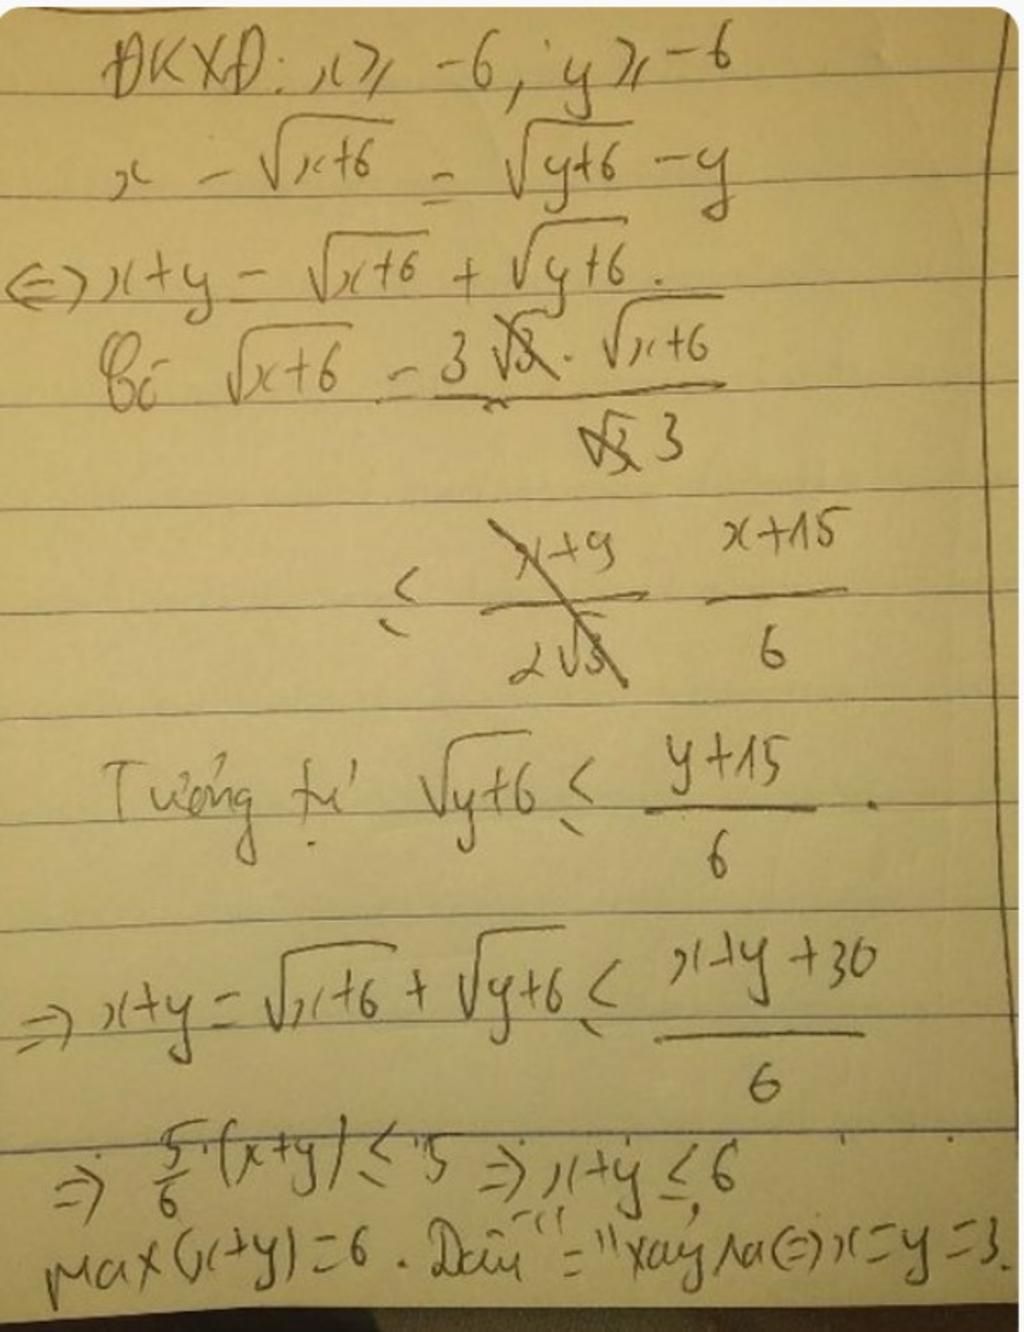 ĐKXĐ: x ≥ -6, y ≥ -6
x - √(x+6) = √(y+6) - y
⇔ x+y = √(x+6) + √(y+6).
Có √(x+6) = 3 . √(x+6) / 3
≤ (x+15)/6
Tương tự √(y+6) ≤ (y+15)/6.
⇒ x+y = √(x+6) + √(y+6) ≤ (x+y+30)/6
⇒ 5/6 . (x+y) ≤ 5 ⇒ x+y ≤ 6
max(x+y)=6. Dấu "=" xảy ra ⇔ x=y=3.